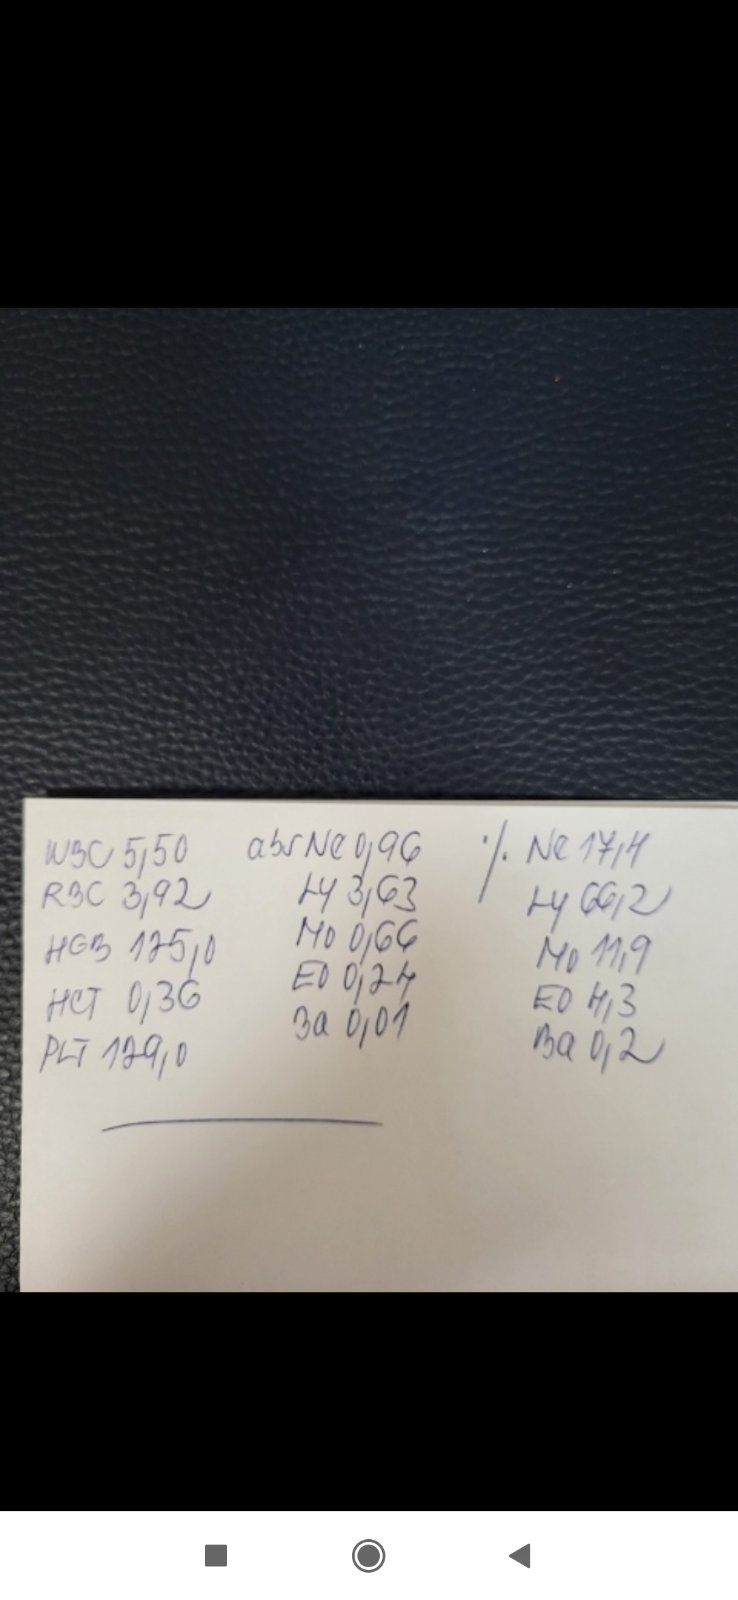 WBC 5,50
RBC 3,92
HGB 125,0
HCT 0,36
PLT 129,0
abs Ne 0,96
Ly 3,63
Mo 0,66
EO 0,24
Ba 0,01
% Ne 17,4
Ly 66,2
Mo 11,9
EO 4,3
Ba 0,2